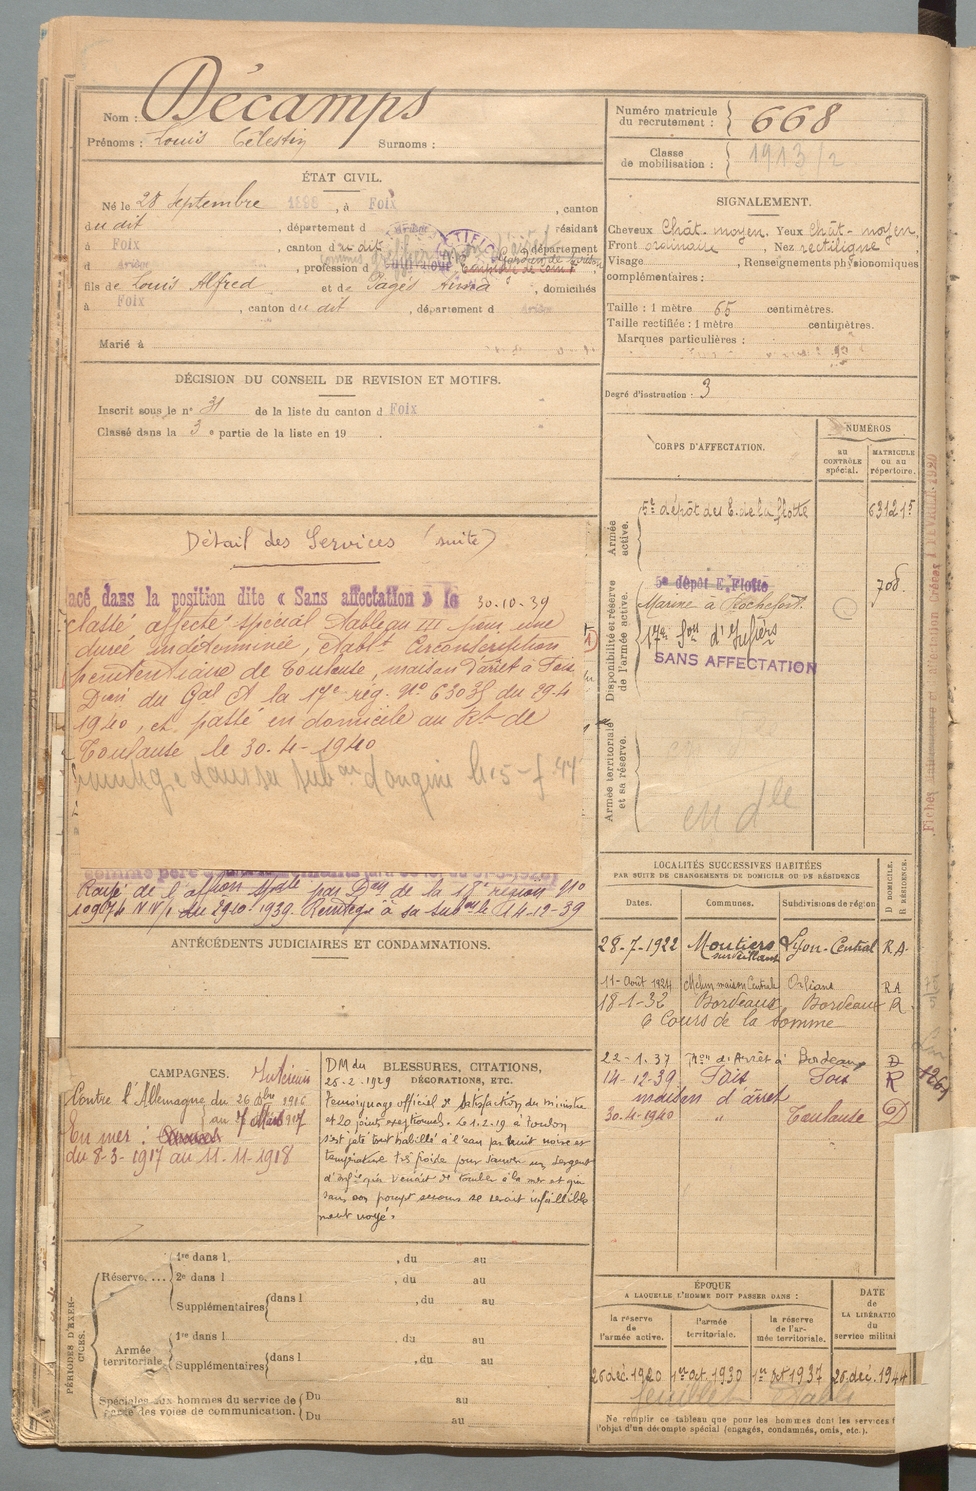 Nom : Décamps
Prénoms : Louis Célestin Surnoms :
ÉTAT CIVIL.
Né le 28 Septembre 1898, à Foix, canton
du dit, département d Ariège résidant
à Foix, canton du dit département
d Ariège, profession d
fils de Louis Alfred et de Pagès Anna, domiciliés
à Foix, canton du dit, département d Ariège
Marié à
DÉCISION DU CONSEIL DE REVISION ET MOTIFS.
Inscrit sous le n° 31 de la liste du canton d Foix
Classé dans la 3 e partie de la liste en 19 .
Détail des Services (suite)
acé dans la position dite « Sans affectation » le 30.10.39
classé affecté spécial Tableau III pour une
durée indéterminée, établt Circonscription
pénitentiaire de Toulouse, maison d'arrêt à Foix
Don du Gal Ct la 17e rég. N° 6303 du 29-4
1940, et passé en domicile au Rt de
Toulouse le 30-4-1940
dans sa subon d'origine le 15-
Rayé de l'affon spéle par Don de la 18e région N°
1939. Réintégré à sa subon le 14-12-39
ANTÉCÉDENTS JUDICIAIRES ET CONDAMNATIONS.
CAMPAGNES. Intérieur
Contre l'Allemagne du 26 Xbre 1916
au 7 Mars 1917
En mer :
du 8-3-1917 au 11-11-1918
BLESSURES, CITATIONS,
DÉCORATIONS, ETC.
DM du
25-2-1929
Témoignage officiel de Satisfaction du ministre
et 20 jours exceptionnels. Le 1.2.19 à Toulon
s'est jeté tout habillé à l'eau par nuit noire et
température très froide pour sauver un Sergent
d'infie qui venait de tomber à la mer et qui
sans son prompt secours se serait infaillible
ment noyé.
PÉRIODES D'EXERCICES.
Réserve....
1re dans l , du au
2e dans l , du au
Supplémentaires dans l , du au
Armée territoriale
1re dans l , du au
Supplémentaires dans l , du au
Spéciales aux hommes du service de garde des voies de communication.
Du au
Du au
Numéro matricule du recrutement : 668
Classe de mobilisation : 1913/2
SIGNALEMENT.
Cheveux Chât. moyen. Yeux Chât-moyen.
Front ordinaire, Nez rectiligne
Visage , Renseignements physionomiques
complémentaires :
Taille : 1 mètre 65 centimètres.
Taille rectifiée : 1 mètre centimètres.
Marques particulières :
Degré d'instruction : 3
CORPS D'AFFECTATION.
NUMÉROS
AU CONTRÔLE spécial.
MATRICULE OU AU répertoire.
Armée active.
5e dépôt des E. de la flotte 63121-5
Disponibilité et réserve de l'armée active.
5e dépôt E. Flotte
Marine à Rochefort. 708
17e Son d'Infirs
SANS AFFECTATION
Armée territoriale et sa réserve.
en dlle
LOCALITÉS SUCCESSIVES HABITÉES
PAR SUITE DE CHANGEMENTS DE DOMICILE OU DE RÉSIDENCE
D DOMICILE.
R RÉSIDENCE.
Dates. Communes. Subdivisions de région
28-7-1922 Moutiers Lyon-Central R.A.
11-Août 1924 Melun maison Centrale Orléans RA
18-1-32 Bordeaux Bordeaux R.
6 Cours de la Somme
22-1.37 Mon d'Arrêt à Bordeaux D
14-12-39 Foix Foix R
maison d'arrêt
30-4-1940 " Toulouse D
ÉPOQUE
A LAQUELLE L'HOMME DOIT PASSER DANS :
la réserve de l'armée active.
l'armée territoriale.
la réserve de l'armée territoriale.
DATE de LA LIBÉRATIO du service militai
26 déc. 1920 1er oct. 1930 1er oct 1937 26 déc. 1944
Ne remplir ce tableau que pour les hommes dont les services f
l'objet d'un décompte spécial (engagés, condamnés, omis, etc.).